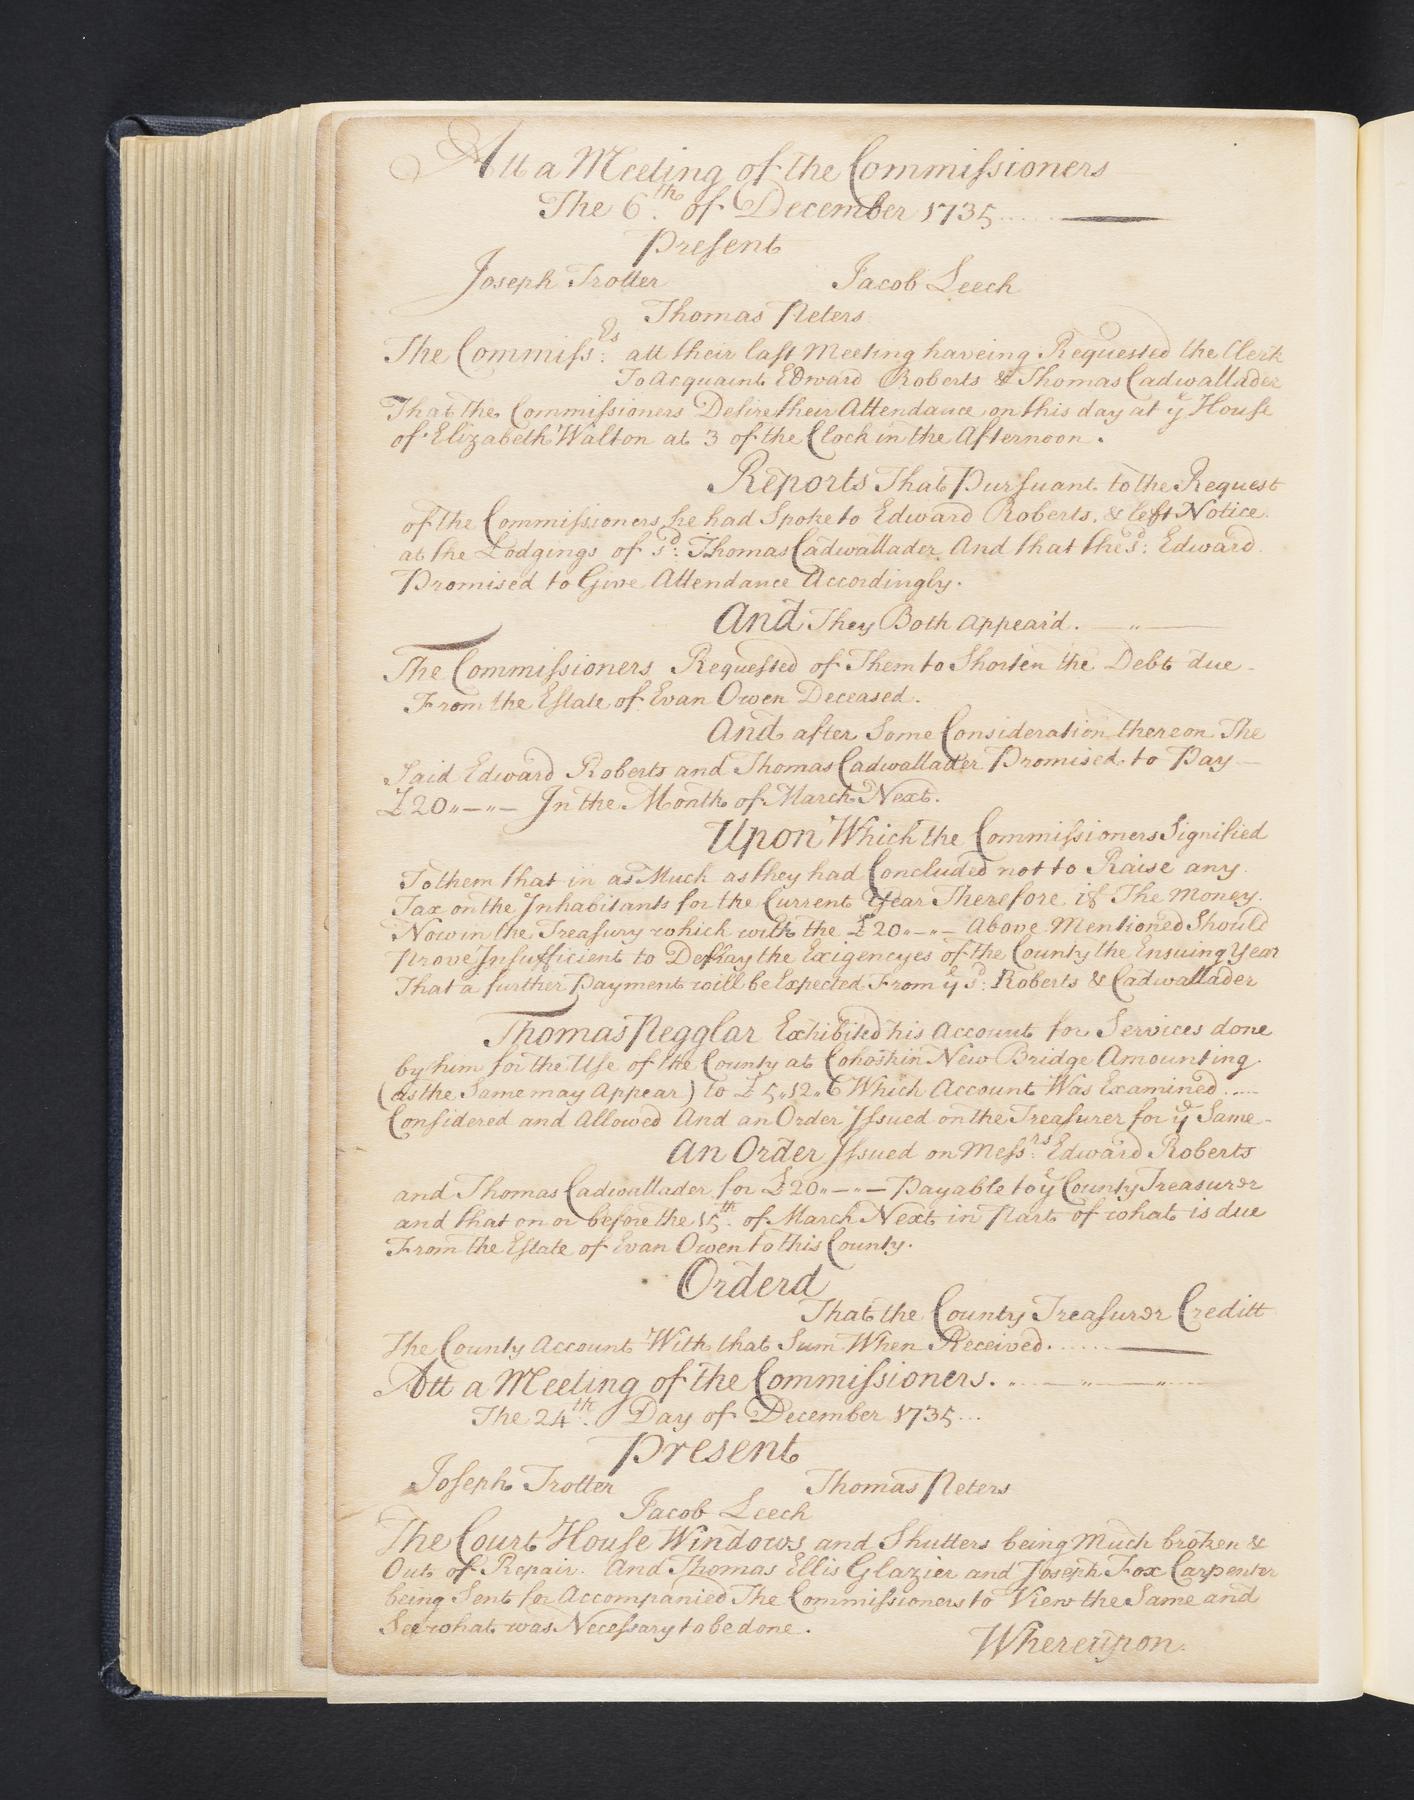 Att a Meeting of the Commissioners
The 6th. of December 1735
Present
Joseph Trotter Jacob Leech
Thomas Peters
The Commiss:rs att their last Meeting haveing Requested the Clerk
To Acquaint Edward Roberts & Thomas Cadwallader
That the Commissioners Desire their Attendance on this day at ye House
of Elizabeth Walton at 3 of the Clock in the Afternoon.
Reports That Pursuant to the Request
of the Commissioners, he had Spoke to Edward Roberts, & left Notice
at the Lodgings of sd: Thomas Cadwallader And that the sd: Edward
Promised to Give Attendance Accordingly.
And They Both Appear'd.
The Commissioners Requested of Them to Shorten the Debt due
From the Estate of Evan Owen Deceased.
And after Some Consideration thereon The
Said Edward Roberts and Thomas Cadwallader Promised to Pay
£20„—„— In the Month of March Next.
Upon Which the Commissioners Signified
To them that in as Much as they had Concluded not to Raise any
Tax on the Inhabitants for the Current Year Therefore if The Money
Now in the Treasury which with the £20„—„— Above Mentioned Should
Prove Insufficient to Defray the Exigencyes of the County the Ensuing Year
That a further Payment will be Expected From ye sd: Roberts & Cadwallader
Thomas Pegglar Exhibited his Account for Services done
by him for the Use of the County at Cohoskin New Bridge Amounting
(as the Same may Appear) to £5„12„6 Which Account Was Examined
Considered and Allowed And an Order Issued on the Treasurer for ye Same
An Order Issued on Mess:rs Edward Roberts
and Thomas Cadwallader for £20„—„— Payable to ye County Treasurer
and that on or before the 15th. of March Next in Part of what is due
From the Estate of Evan Owen to this County.
Orderd
That the County Treasurer Creditt
The County Account With that Sum When Received.
Att a Meeting of the Commissioners.
The 24th. Day of December 1735
Present
Joseph Trotter Thomas Peters
Jacob Leech
The Court House Windows and Shutters being Much broken &
Out of Repair. And Thomas Ellis Glazier and Joseph Fox Carpenter
being Sent for Accompanied The Commissioners to View the Same and
See what was Necessary to be done.
Whereupon